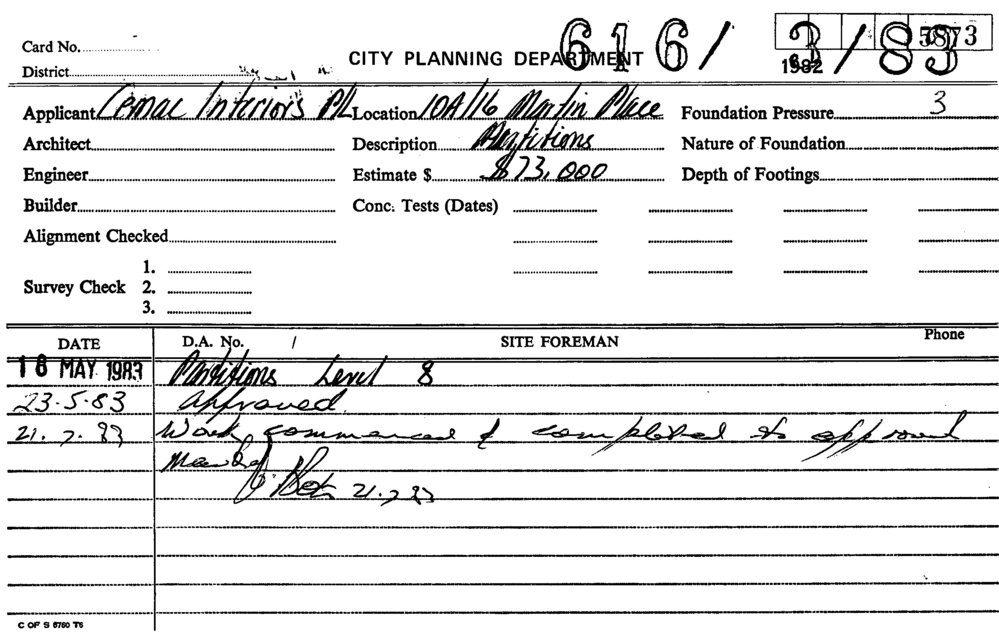 Card No.
616/3/83
5873
CITY PLANNING DEPARTMENT
1982
District
Applicant Cemac Interiors P/L Location 10A/16 Martin Place Foundation Pressure 3
Architect Description Partitions Nature of Foundation
Engineer Estimate $ $73,000 Depth of Footings
Builder Conc. Tests (Dates)
Alignment Checked
1.
Survey Check 2.
3.
DATE D.A. No. / SITE FOREMAN Phone
18 MAY 1983 Partitions Level 8
23-5-83 approved.
21.7.83 Work commenced & completed to approved
21.7.83
C OF S 6760 T6